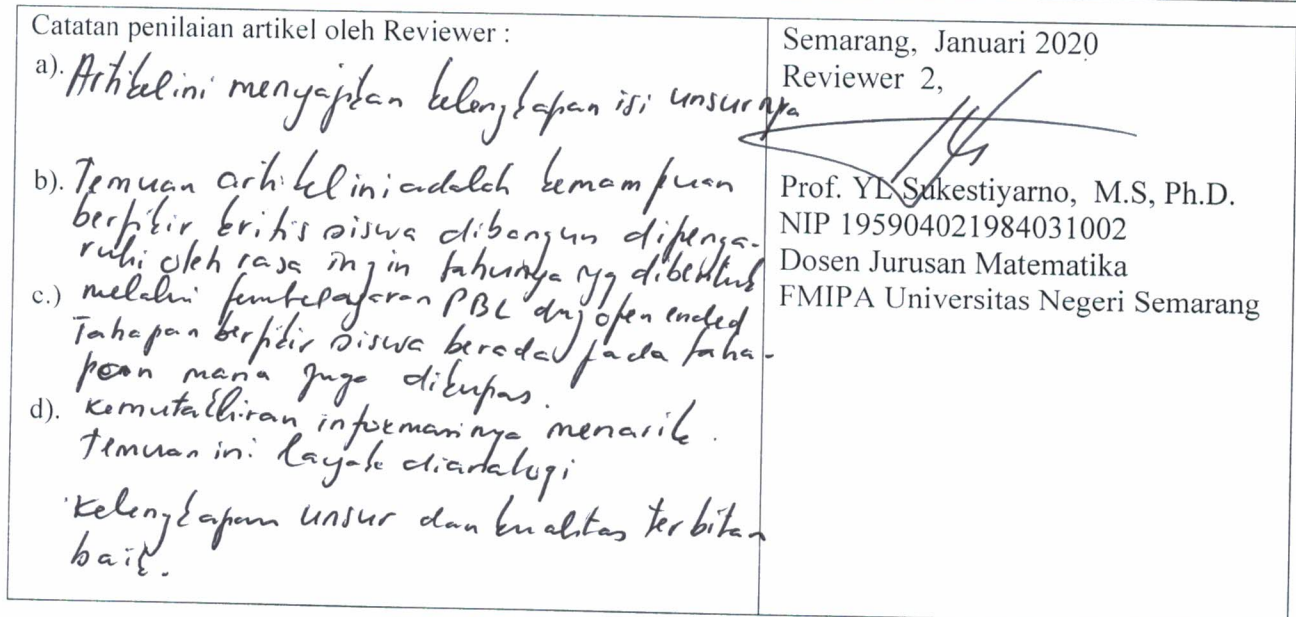 Catatan penilaian artikel oleh Reviewer :
a). Artikel ini menyajikan kelengkapan isi unsurnya
b). Temuan artikel ini adalah kemampuan
berfikir kritis siswa dibangun dipenga-
ruhi oleh rasa ingin tahunya yg dibentuk
c.) melalui pembelajaran PBL dng open ended
Tahapan berfikir siswa berada pada taha-
pan mana juga dikupas.
d). Kemutakhiran informasinya menarik.
Temuan ini layak dianalogi
Kelengkapan unsur dan kualitas terbitan
baik.
Semarang, Januari 2020
Reviewer 2,
Prof. YL Sukestiyarno, M.S, Ph.D.
NIP 195904021984031002
Dosen Jurusan Matematika
FMIPA Universitas Negeri Semarang